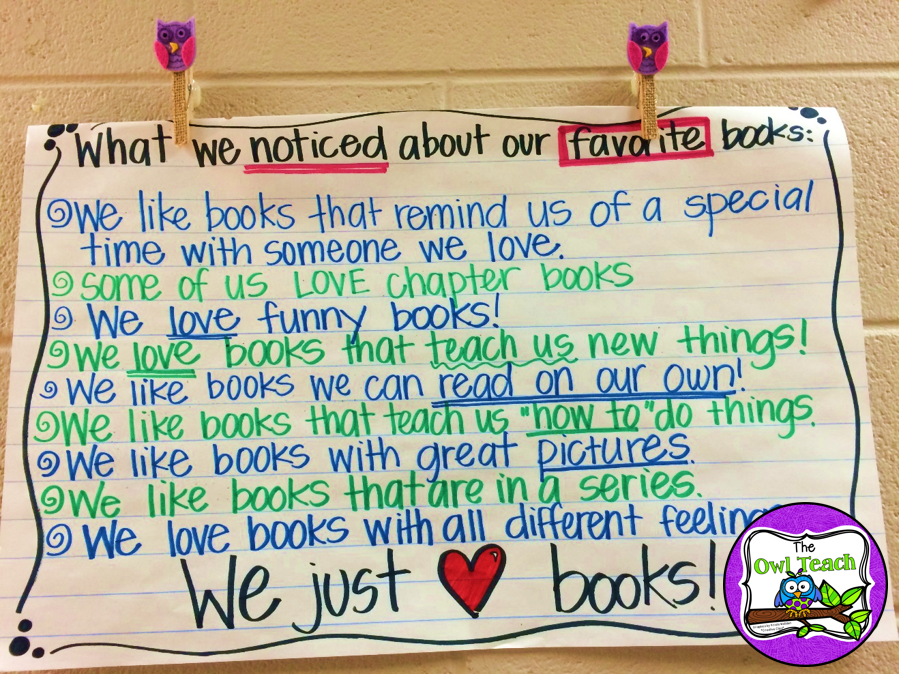 What we noticed about our favorite books:
We like books that remind us of a special
time with someone we love.
some of us LOVE chapter books
We love funny books!
We love books that teach us new things!
We like books we can read on our own!
We like books that teach us "how to" do things.
We like books with great pictures.
We like books that are in a series.
We love books with all different
We just ❤ books!
The
Owl Teach